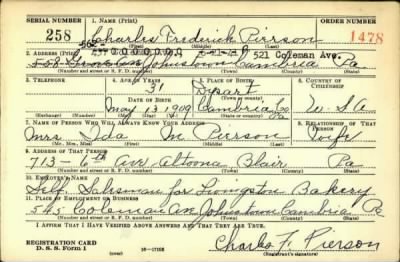 SERIAL NUMBER 1. NAME (Print) ORDER NUMBER
258 Charles Frederick Pierson 1478
(First) (Middle) (Last)
2. ADDRESS (Print) 521 Coleman Ave.
Johnstown Cambria Pa
(Number and street or R. F. D. number) (Town) (County) (State)
3. TELEPHONE 4. AGE IN YEARS 5. PLACE OF BIRTH 6. COUNTRY OF CITIZENSHIP
31
DATE OF BIRTH Cambria Co
May 13 1909 Pa U. S. A
(Exchange) (Number) (Mo.) (Day) (Yr.) (State or country)
7. NAME OF PERSON WHO WILL ALWAYS KNOW YOUR ADDRESS 8. RELATIONSHIP OF THAT PERSON
Mrs. Ida M Pierson wife
(Mr., Mrs., Miss) (First) (Middle) (Last)
9. ADDRESS OF THAT PERSON
713-6th Ave Altoona Blair Pa
(Number and street or R. F. D. number) (Town) (County) (State)
10. EMPLOYER'S NAME
Self Salesman for Livingston Bakery
11. PLACE OF EMPLOYMENT OR BUSINESS
545 Coleman Ave Johnstown Cambria Pa
(Number and street or R. F. D. number) (Town) (County) (State)
I AFFIRM THAT I HAVE VERIFIED ABOVE ANSWERS AND THAT THEY ARE TRUE.
REGISTRATION CARD
D. S. S. Form 1 (over) Charles F. Pierson
(Registrant's signature)